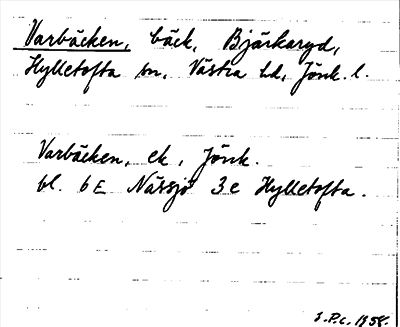 Varbäcken, bäck, Bjärkaryd,
Hylletofta sn, Västra hd, Jönk. l.
Varbäcken, ek, Jönk.
bl. 6E Nässjö 3e Hylletofta.
1958.